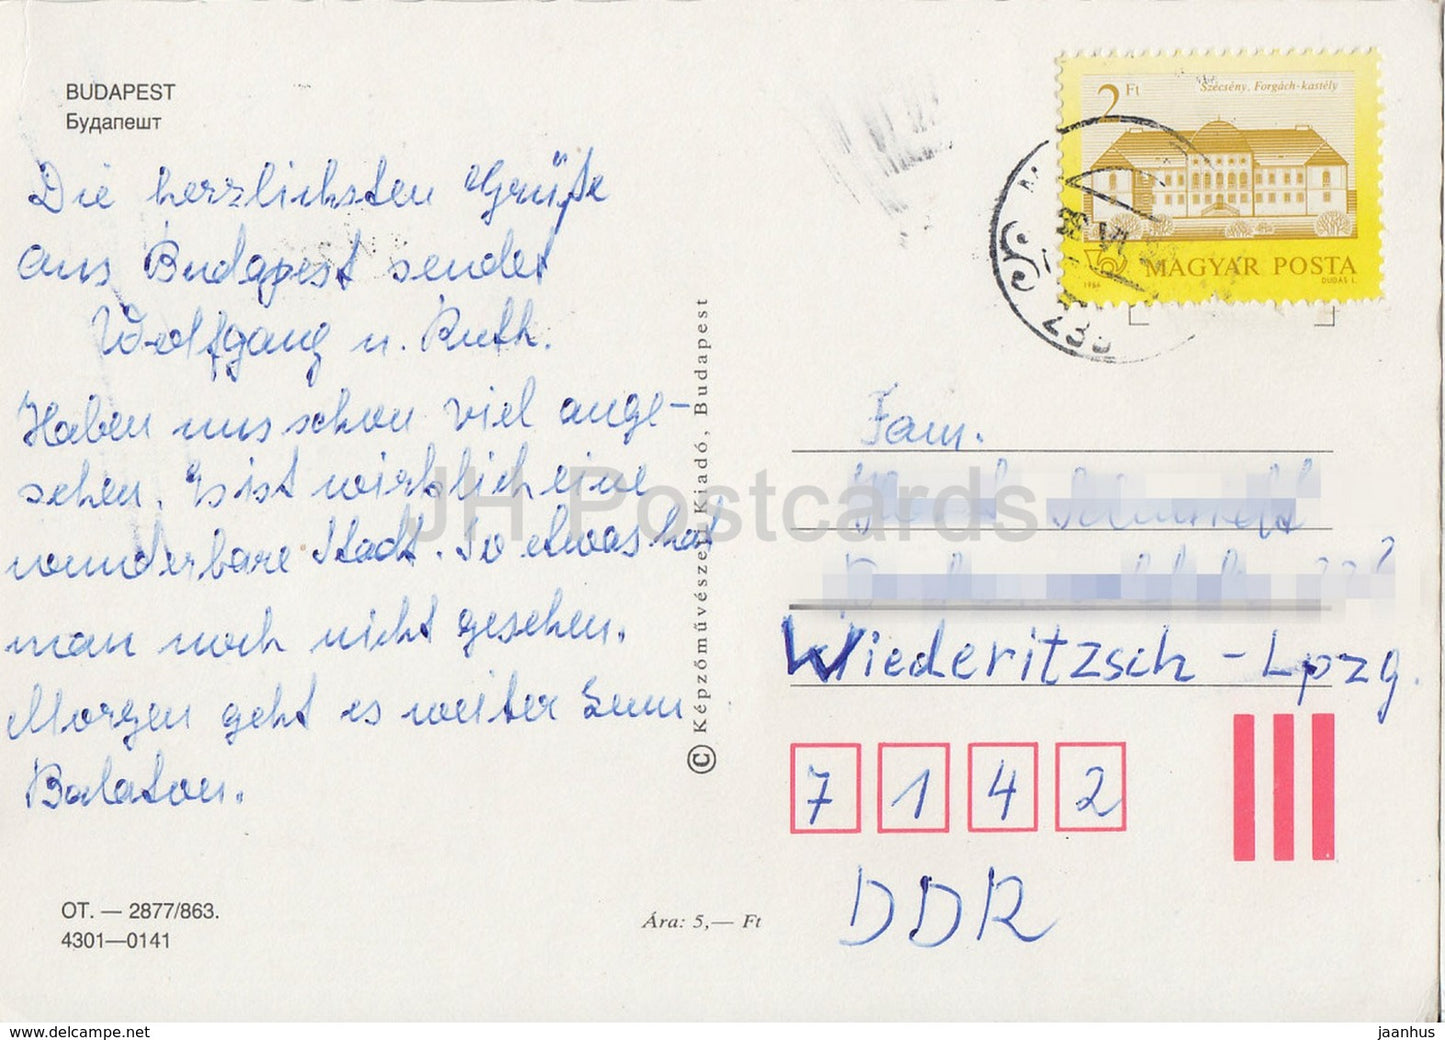 BUDAPEST
Будапешт
Die herzlichsten Grüße
aus Budapest sendet
Wolfgang u. Ruth.
Haben uns schon viel ange-
sehen. Es ist wirklich eine
wunderbare Stadt. So etwas hat
man noch nicht gesehen.
Morgen geht es weiter zum
Balaton.
OT. — 2877/863.
4301—0141
Ára: 5,— Ft
© Képzőművészeti Kiadó, Budapest
2 Ft
Szécsény, Forgách-kastély
MAGYAR POSTA
1986
DUDÁS L.
Fam.
Wiederitzsch - Lpzg.
7 1 4 2
DDR
JH Postcards
www.delcampe.net
jaanhus